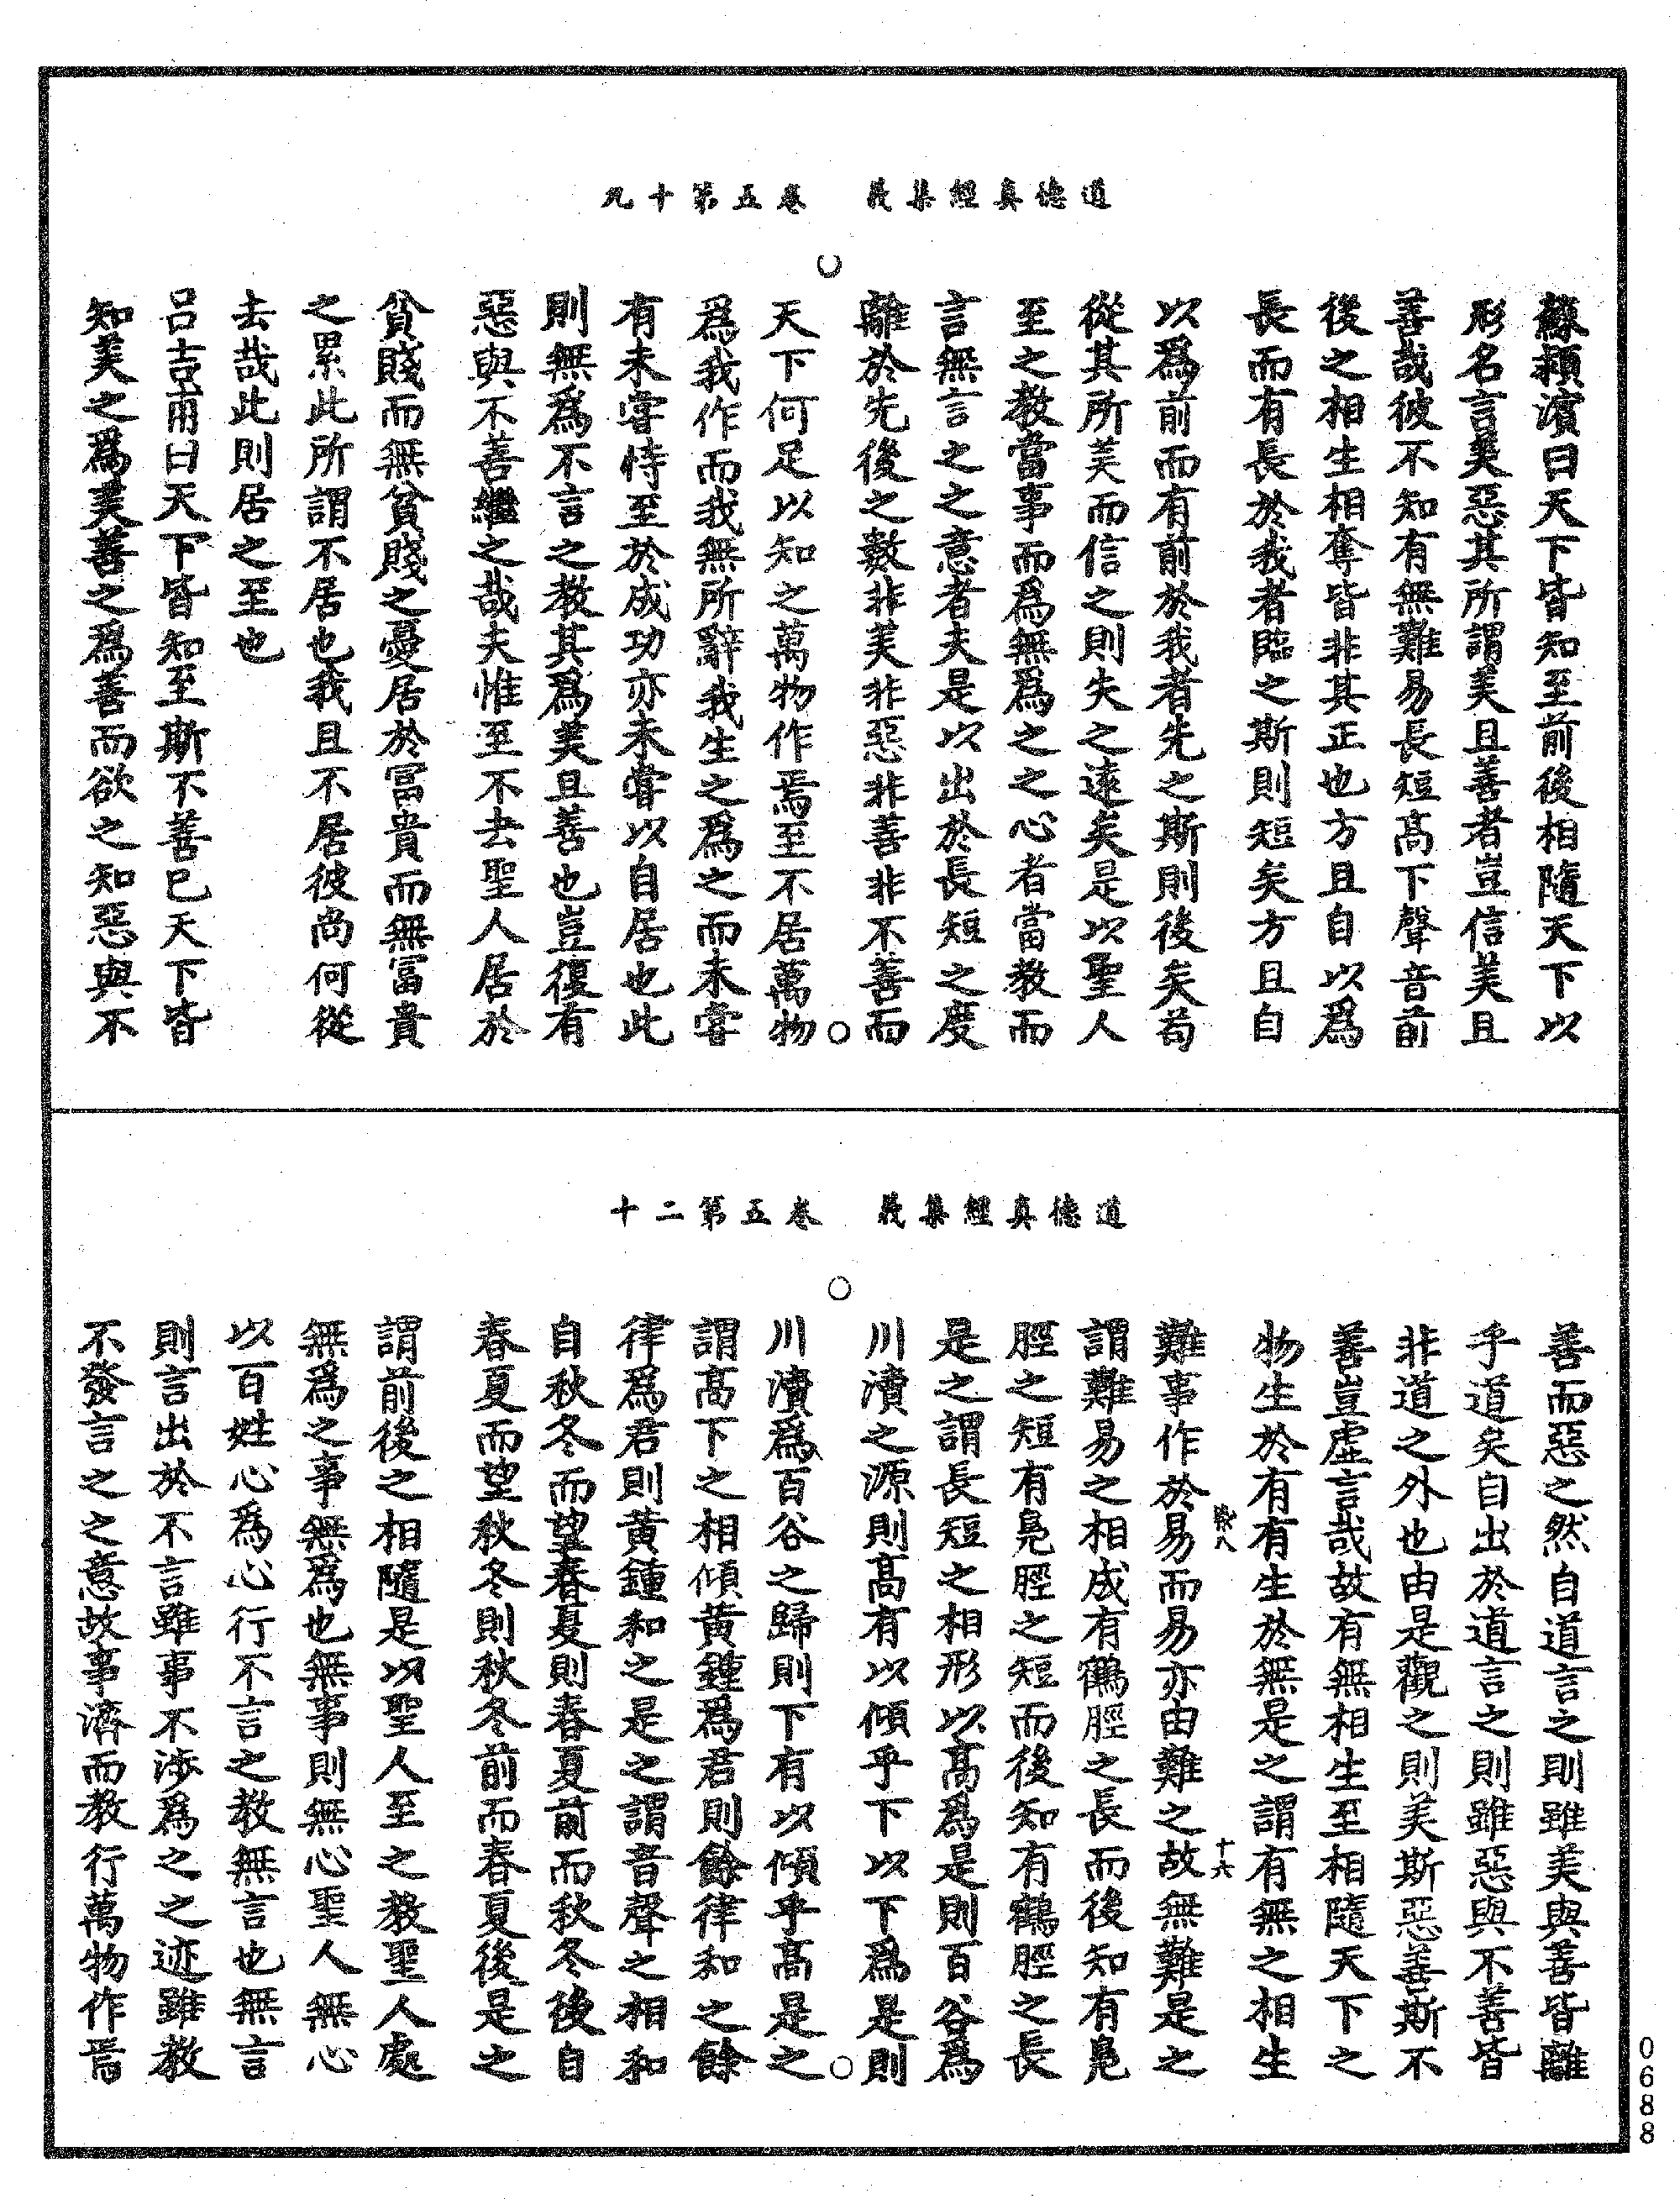 道德真經集義 卷五第十九
蘇潁濱曰天下皆知至前後相隨天下以
形名言美惡其所謂美且善者豈信美且
善哉彼不知有無難易長短高下聲音前
後之相生相奪皆非其正也方且自以爲
長而有長於我者臨之斯則短矣方且自
以爲前而有前於我者先之斯則後矣苟
從其所美而信之則失之遠矣是以聖人
至之教當事而爲無爲之之心者當教而
言無言之之意者夫是以出於長短之度
離於先後之數非美非惡非善非不善而
天下何足以知之萬物作焉至不居萬物
爲我作而我無所辭我生之爲之而未嘗
有未嘗恃至於成功亦未嘗以自居也此
則無爲不言之教其爲美且善也豈復有
惡與不善繼之哉夫惟至不去聖人居於
貧賤而無貧賤之憂居於富貴而無富貴
之累此所謂不居也我且不居彼尚何從
去哉此則居之至也
呂吉甫曰天下皆知至斯不善已天下皆
知美之爲美善之爲善而欲之知惡與不
道德真經集義 卷五第二十
善而惡之然自道言之則雖美與善皆離
乎道矣自出於道言之則雖惡與不善皆
非道之外也由是觀之則美斯惡善斯不
善豈虛言哉故有無相生至相隨天下之
物生於有有生於無是之謂有無之相生
難事作於易而易亦由難之故無難是之
謂難易之相成有鶴脛之長而後知有鳧
脛之短有鳧脛之短而後知有鶴脛之長
是之謂長短之相形以高爲是則百谷爲
川瀆之源則高有以傾乎下以下爲是則
川瀆爲百谷之歸則下有以傾乎高是之
謂高下之相傾黃鍾爲君則餘律和之餘
律爲君則黃鍾和之是之謂音聲之相和
自秋冬而望春夏則春夏前而秋冬後自
春夏而望秋冬則秋冬前而春夏後是之
謂前後之相隨是以聖人至之教聖人處
無爲之事無爲也無事則無心聖人無心
以百姓心爲心行不言之教無言也無言
則言出於不言雖事不涉爲之之迹雖教
不發言之之意故事濟而教行萬物作焉
八
十六
0688